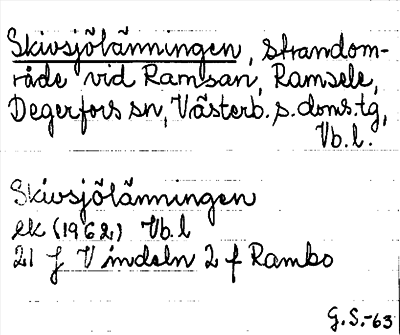 Skivsjölänningen, strandom-
råde vid Ramsan, Ramsele,
Degerfors sn, Västerb. s. doms.tg,
Vb.l.
Skivsjölänningen
ek (1962) Vb.l
21 J Vindeln 2 f Rambo
G.S.-63